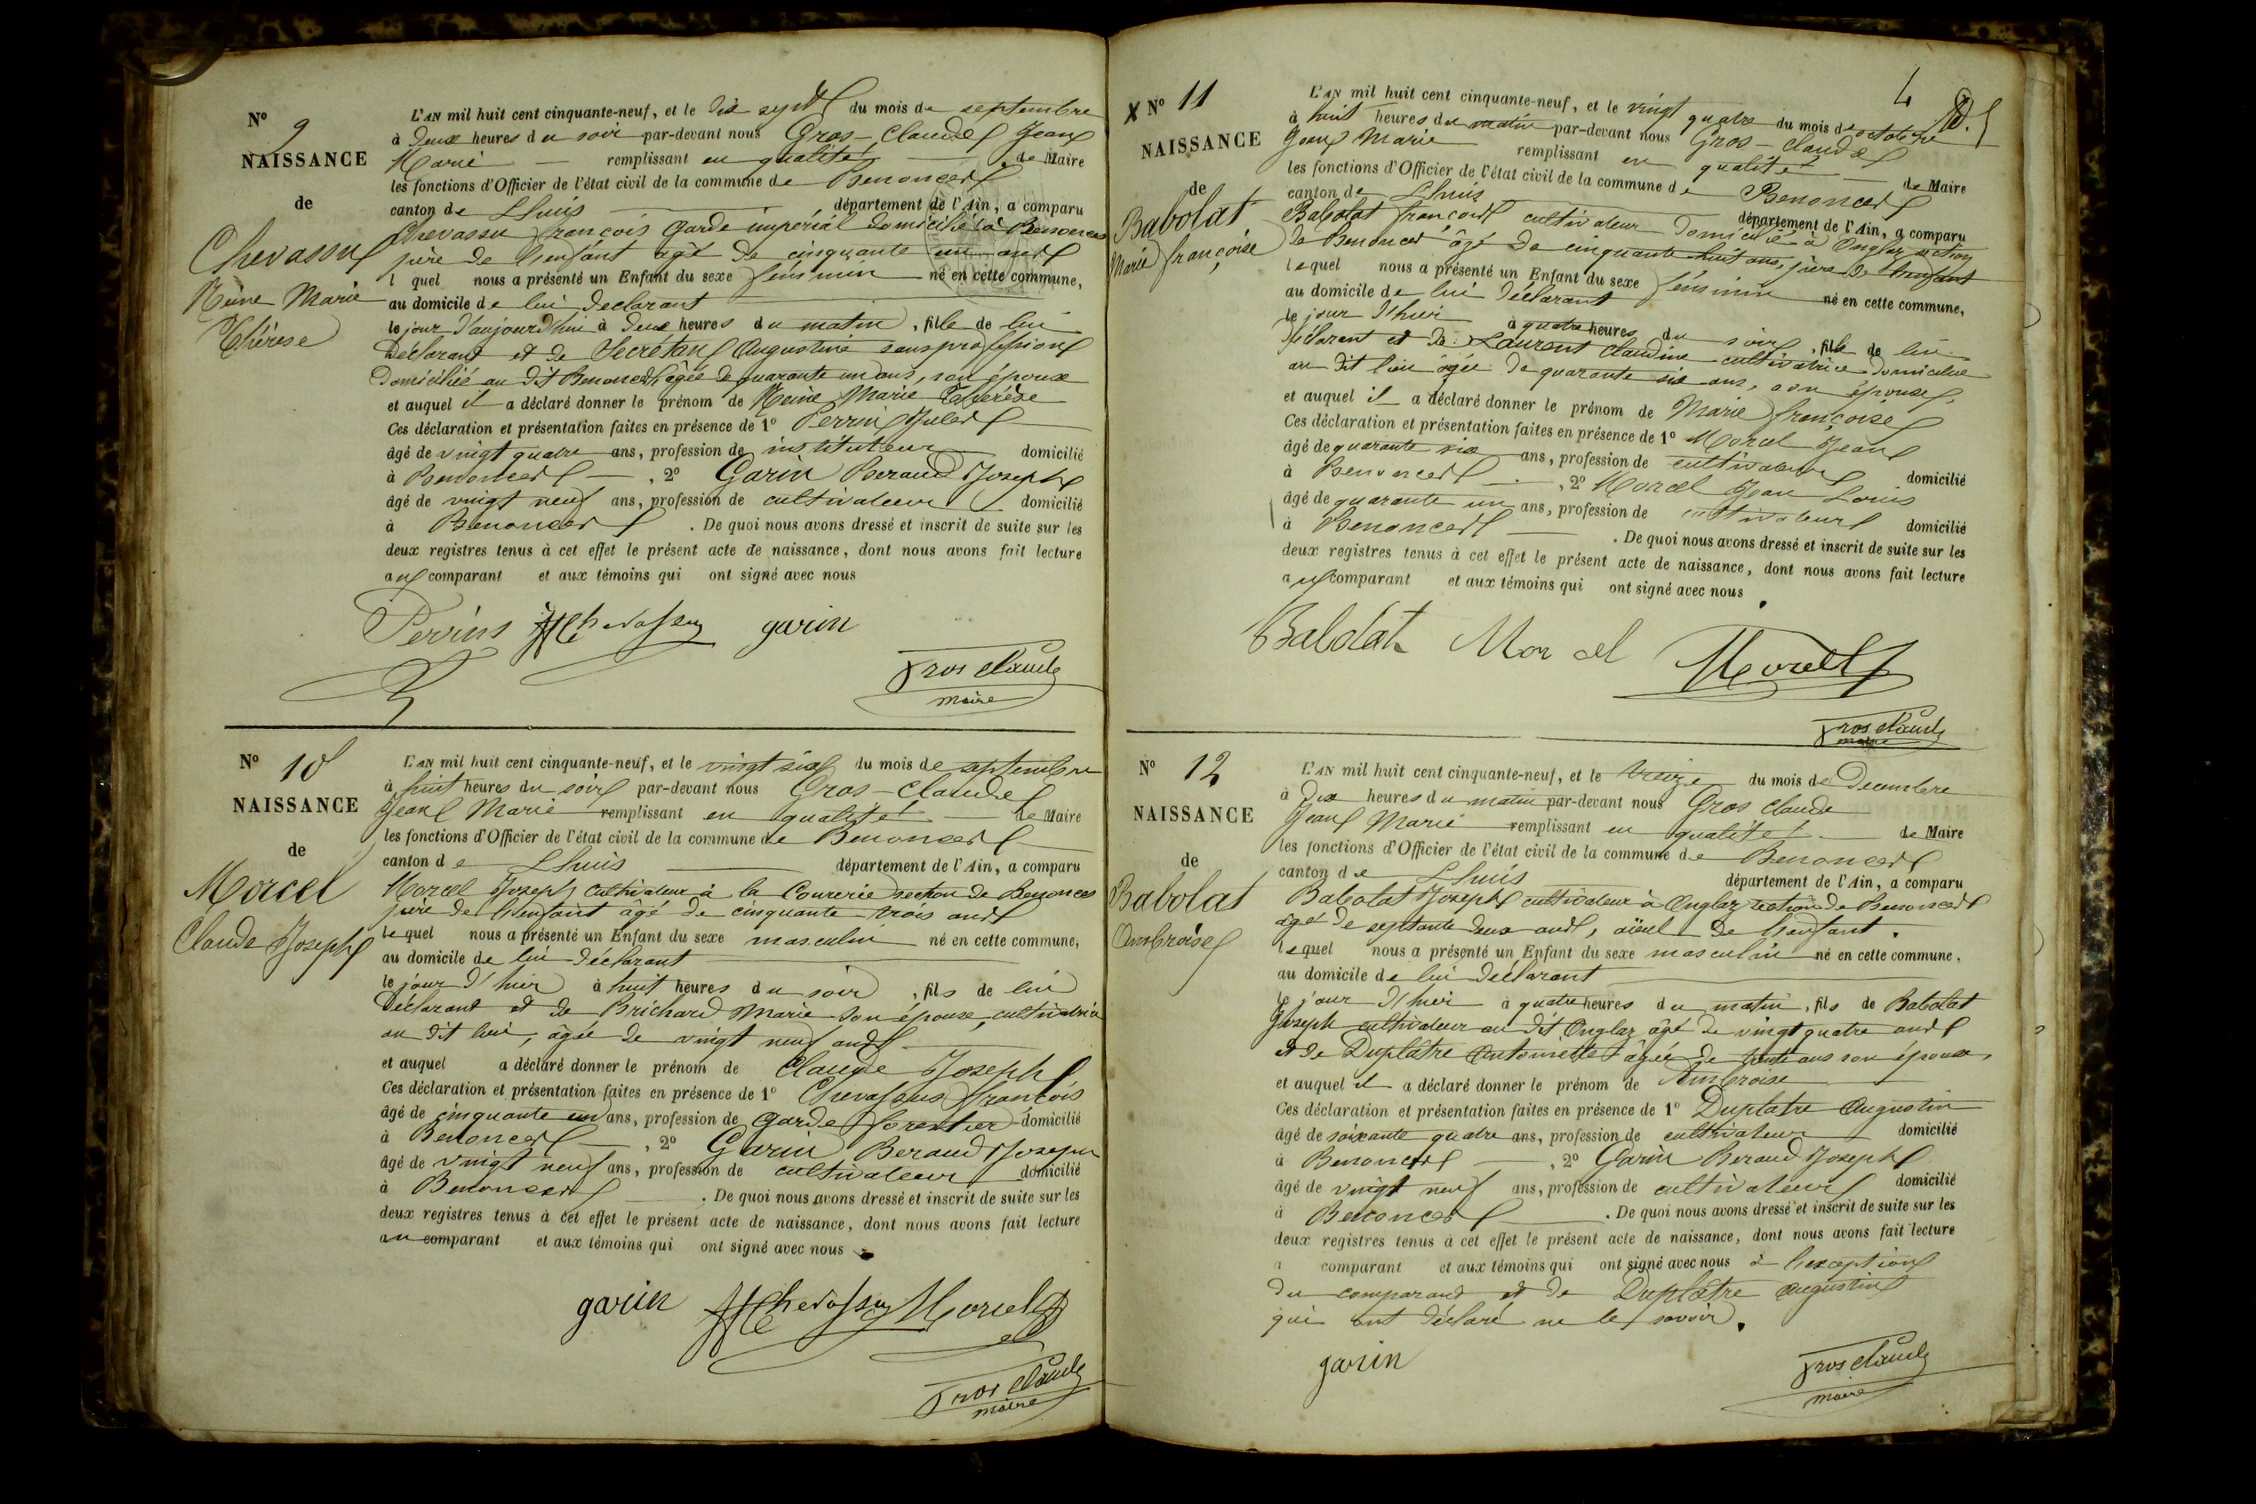 N° 9
NAISSANCE
de
Chevassu
Reine Marie
Thérèse
L'AN mil huit cent cinquante-neuf, et le dix sept du mois de septembre
à deux heures du soir par-devant nous Gros-Claude Jean
Marie remplissant en qualité de Maire
les fonctions d'Officier de l'état civil de la commune de Benonces
canton de Lhuis département de l'Ain, a comparu
Chevassu françois garde impérial domicilié à Benonces
père de l'enfant agé de cinquante un ans
l quel nous a présenté un Enfant du sexe féminin né en cette commune,
au domicile de lui déclarant
le jour d'aujourd'hui à deux heures du matin, fille de lui
déclarant et de Secrétan Augustine sans profession
domiciliée au dit Benonces, âgée de quarante un ans, son épouse
et auquel il a déclaré donner le prénom de Reine Marie Thérèse
Ces déclaration et présentation faites en présence de 1° Perrin Jules
âgé de vingt quatre ans, profession de instituteur domicilié
à Benonces, 2° Garin Beraud Joseph
âgé de vingt neuf ans, profession de cultivateur domicilié
à Benonces. De quoi nous avons dressé et inscrit de suite sur les
deux registres tenus à cet effet le présent acte de naissance, dont nous avons fait lecture
au comparant et aux témoins qui ont signé avec nous
Perrin Chevassu garin
Gros Claude
maire
N° 10
NAISSANCE
de
Morcel
Claude Joseph
L'AN mil huit cent cinquante-neuf, et le vingt six du mois de septembre
à huit heures du soir par-devant nous Gros-Claude
Jean Marie remplissant en qualité de Maire
les fonctions d'Officier de l'état civil de la commune de Benonces
canton de Lhuis département de l'Ain, a comparu
Morcel Joseph cultivateur à la Courerie section de Benonces
père de l'enfant âgé de cinquante trois ans
lequel nous a présenté un Enfant du sexe masculin né en cette commune,
au domicile de lui déclarant
le jour d'hier à huit heures du soir, fils de lui
déclarant et de Brichard Marie son épouse, cultivatrice
au dit lieu, âgée de vingt neuf ans
et auquel a déclaré donner le prénom de Claude Joseph
Ces déclaration et présentation faites en présence de 1° Chevassus françois
âgé de cinquante un ans, profession de garde forestier domicilié
à Benonces, 2° Garin Beraud Joseph
âgé de vingt neuf ans, profession de cultivateur domicilié
à Benonces. De quoi nous avons dressé et inscrit de suite sur les
deux registres tenus à cet effet le présent acte de naissance, dont nous avons fait lecture
au comparant et aux témoins qui ont signé avec nous
garin Chevassu Morcel
Gros Claude
maire
4
X N° 11
NAISSANCE
de
Babolat
Marie françoise
L'AN mil huit cent cinquante-neuf, et le vingt quatre du mois de octobre
à huit heures du matin par-devant nous Gros-Claude
Jean Marie remplissant en qualité de Maire
les fonctions d'Officier de l'état civil de la commune de Benonces
canton de Lhuis département de l'Ain, a comparu
Babolat françois cultivateur domicilié à Onglaz section
de Benonces âgé de cinquante huit ans, père de l'enfant
lequel nous a présenté un Enfant du sexe féminin né en cette commune,
au domicile de lui déclarant
le jour d'hier à quatre heures du soir, fille de lui
déclarant et de Laurent Claudine cultivatrice domiciliée
au dit lieu âgée de quarante six ans, son épouse,
et auquel il a déclaré donner le prénom de Marie françoise
Ces déclaration et présentation faites en présence de 1° Morcel Jean
âgé de quarante six ans, profession de cultivateur domicilié
à Benonces, 2° Morcel Jean Louis
âgé de quarante un ans, profession de cultivateur domicilié
à Benonces. De quoi nous avons dressé et inscrit de suite sur les
deux registres tenus à cet effet le présent acte de naissance, dont nous avons fait lecture
au comparant et aux témoins qui ont signé avec nous.
Babolat Morcel Morcel
Gros Claude
maire
N° 12
NAISSANCE
de
Babolat
Ambroise
L'AN mil huit cent cinquante-neuf, et le treize du mois de Decembre
à dix heures du matin par-devant nous Gros Claude
Jean Marie remplissant en qualité de Maire
les fonctions d'Officier de l'état civil de la commune de Benonces
canton de Lhuis département de l'Ain, a comparu
Babolat Joseph cultivateur à Onglaz section de Benonces
agé de septante deux ans, aïeul de l'enfant.
lequel nous a présenté un Enfant du sexe masculin né en cette commune,
au domicile de lui déclarant
le jour d'hier à quatre heures du matin, fils de Babolat
Joseph cultivateur au dit Onglaz âgé de vingt quatre ans
et de Duplâtre Antoinette âgée de trente ans son épouse,
et auquel il a déclaré donner le prénom de Ambroise
Ces déclaration et présentation faites en présence de 1° Duplatre Augustin
âgé de soixante quatre ans, profession de cultivateur domicilié
à Benonces, 2° Garin Beraud Joseph
âgé de vingt neuf ans, profession de cultivateur domicilié
à Benonces. De quoi nous avons dressé et inscrit de suite sur les
deux registres tenus à cet effet le présent acte de naissance, dont nous avons fait lecture
a comparant et aux témoins qui ont signé avec nous à l'exception
du comparant et de Duplâtre Augustin
qui ont déclaré ne le savoir.
garin
Gros Claude
maire